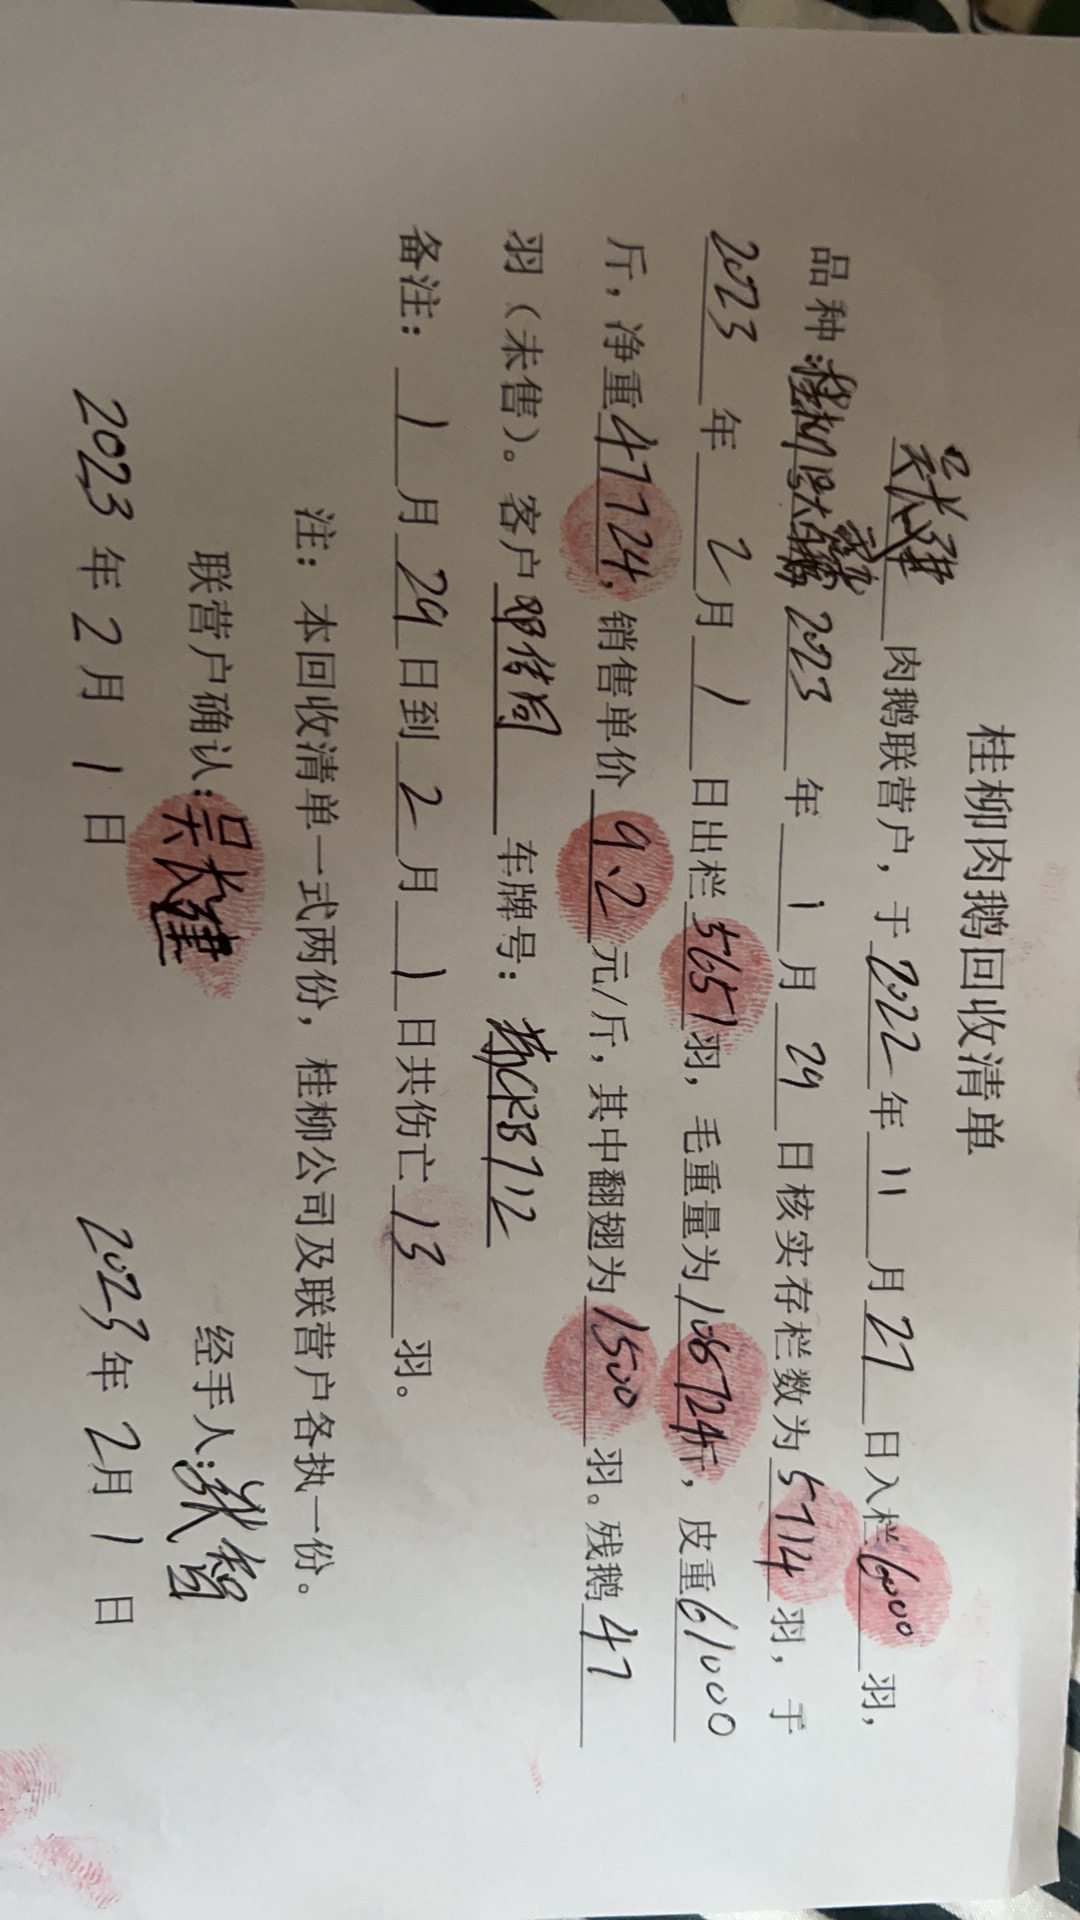 桂柳肉鹅回收清单
吴长建 肉鹅联营户，于 2022 年 11 月 27 日入栏 6000 羽，
品种： 2023 年 1 月 29 日核实存栏数为 5714 羽，于
2023 年 2 月 1 日出栏 5651 羽，毛重量为 108724 斤，皮重 61000
斤，净重 47724，销售单价 9.2 元/斤，其中翻翅为 1500 羽。残鹅 47
羽（未售）。客户 邓传 车牌号： CKB712
备注： 1 月 29 日到 2 月 1 日共伤亡 13 羽。
注：本回收清单一式两份，桂柳公司及联营户各执一份。
联营户确认：吴长建 经手人：张
2023 年 2 月 1 日 2023 年 2 月 1 日